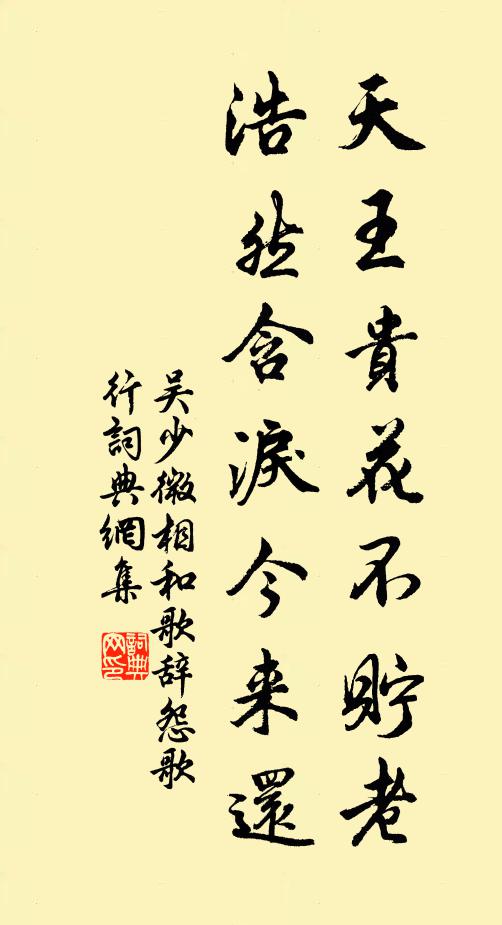 天王貴花不貯老
浩然含淚今来還
吴少微相和歌辞怨歌
行詞典網集
詞典
网印